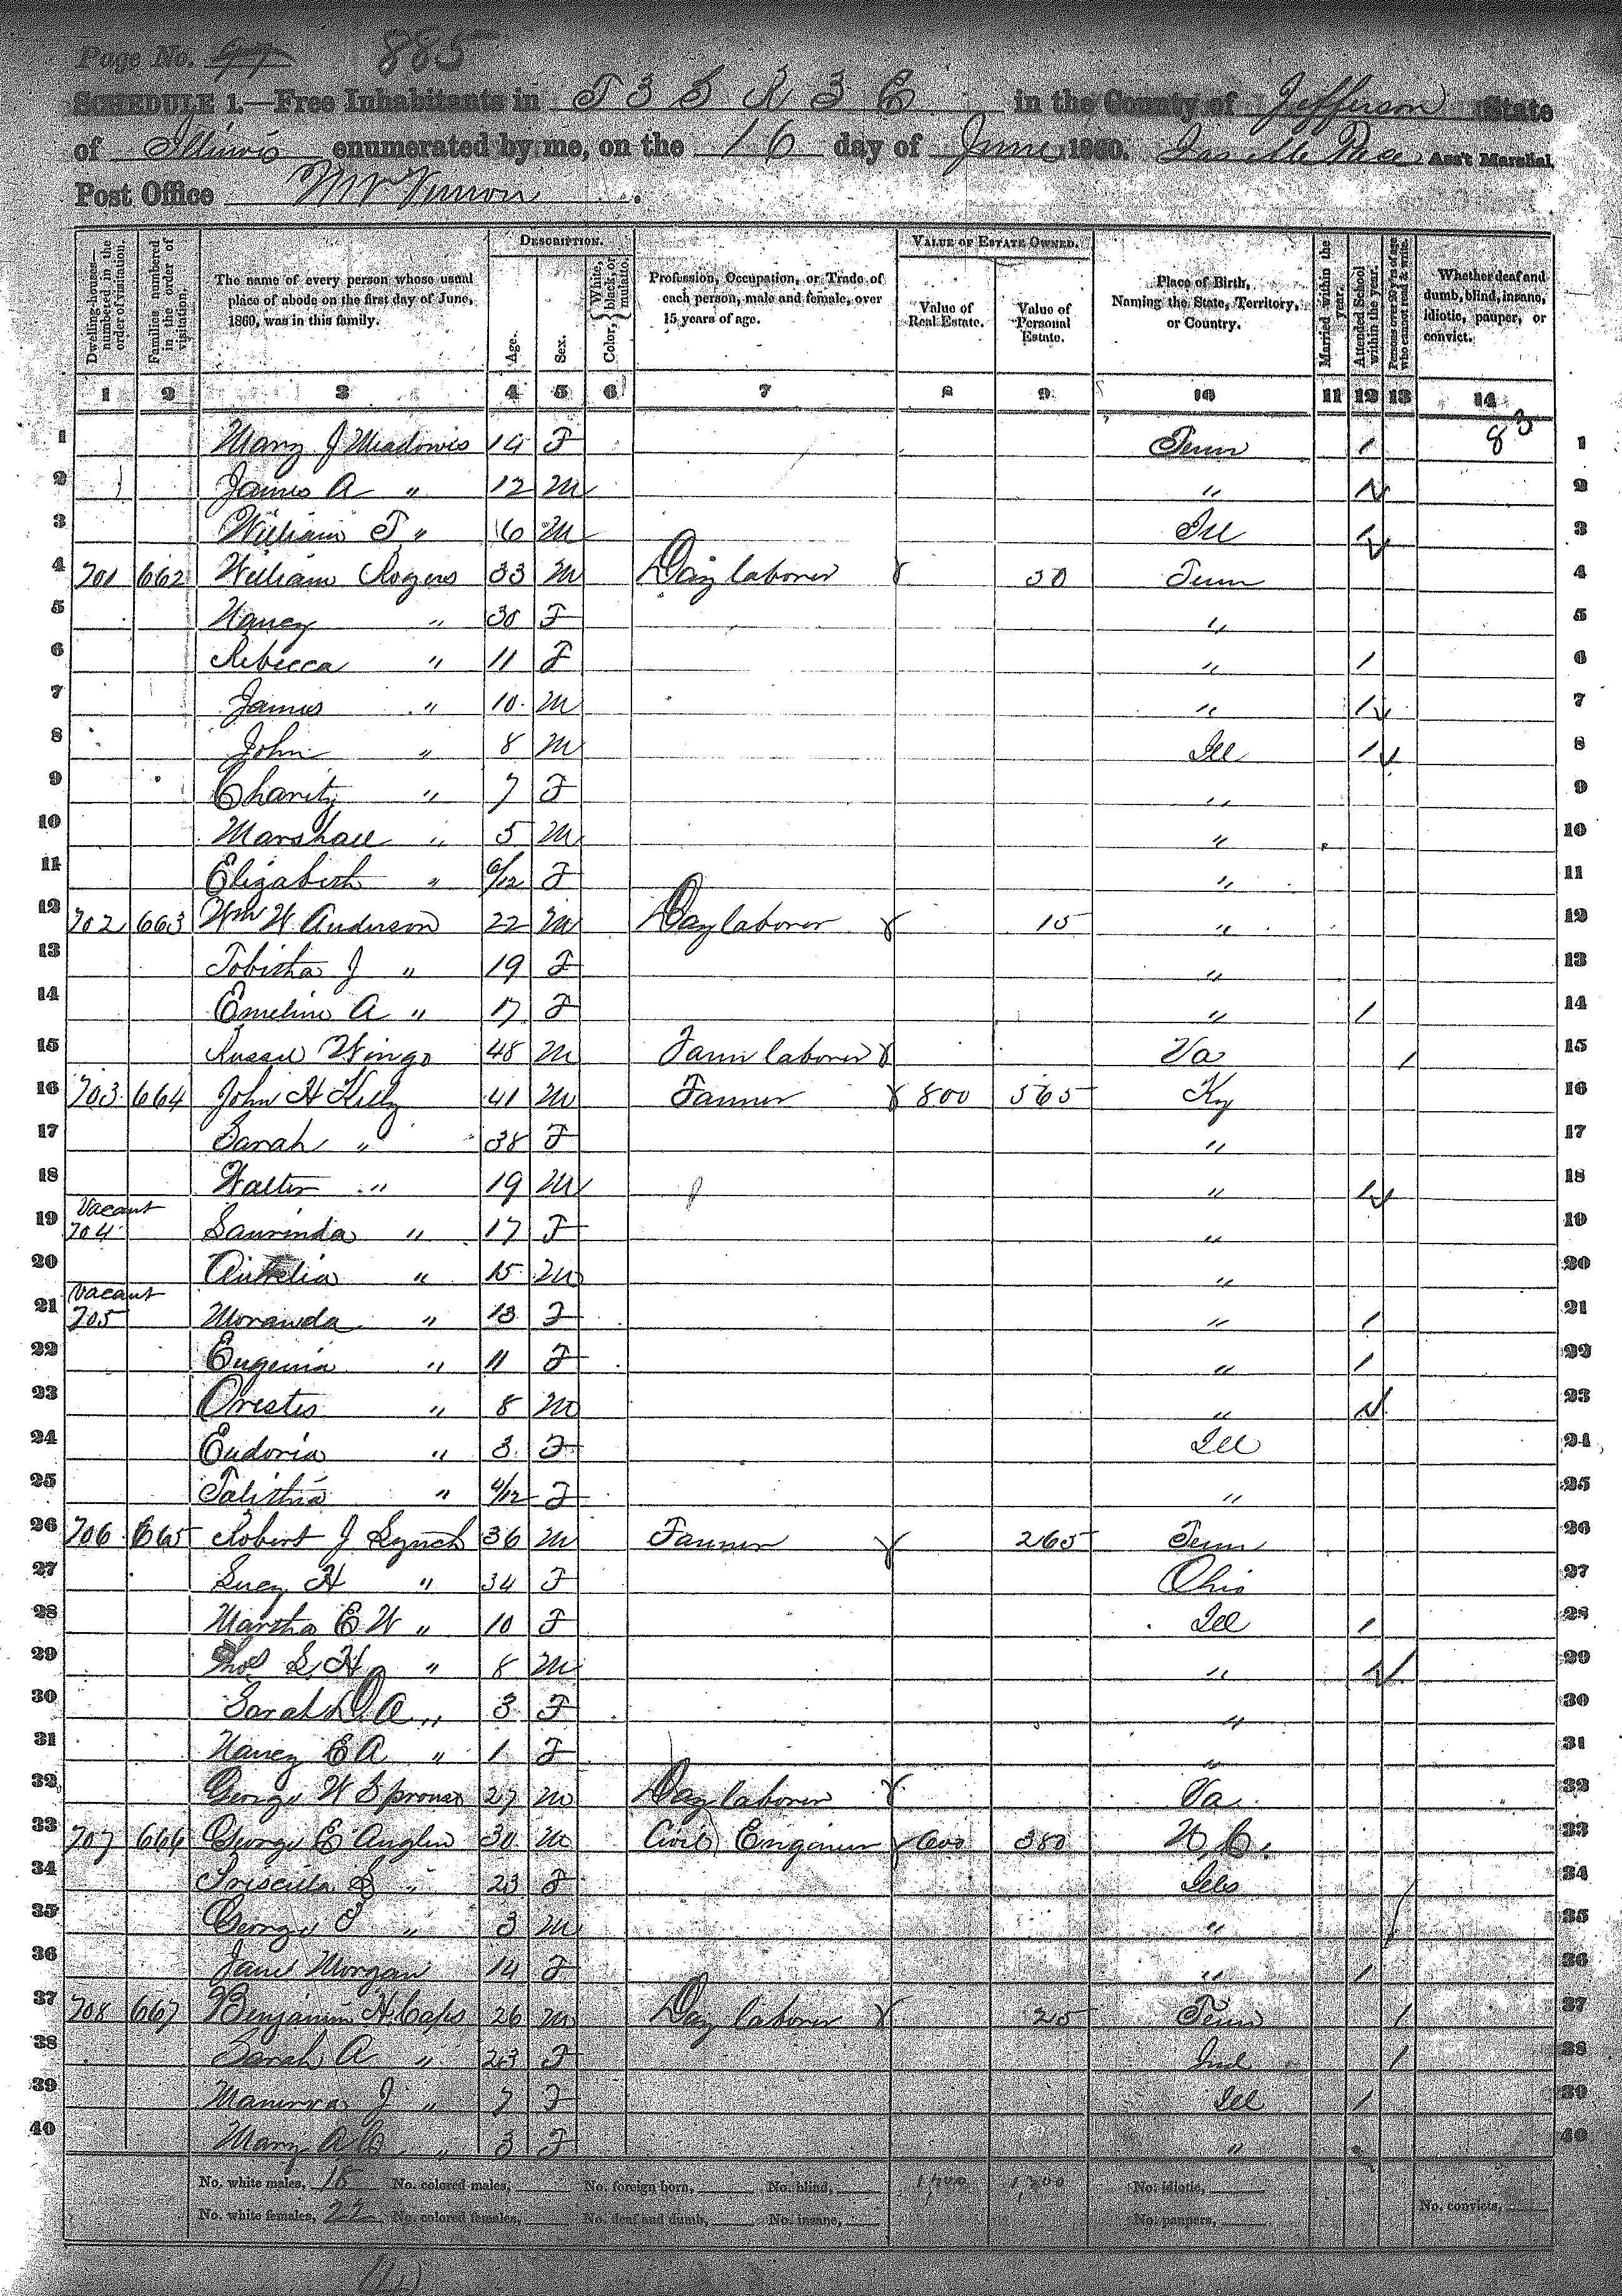 Page No. 97 885
SCHEDULE 1.—Free Inhabitants in T 3 S R 3 E in the County of Jefferson State
of Illinois enumerated by me, on the 16 day of June 1860. Pace Ass't Marshal
Post Office Mt Vernon
DESCRIPTION. VALUE OF ESTATE OWNED.
Dwelling-houses—numbered in the order of visitation. Families numbered in the order of visitation. The name of every person whose usual place of abode on the first day of June, 1860, was in this family. Age. Sex. Color, {White, black, or mulatto. Profession, Occupation, or Trade of each person, male and female, over 15 years of age. Value of Real Estate. Value of Personal Estate. Place of Birth, Naming the State, Territory, or Country. Married within the year. Attended School within the year. Persons over 20 y'rs of age who cannot read & write. Whether deaf and dumb, blind, insane, idiotic, pauper, or convict.
1 2 3 4 5 6 7 8 9 10 11 12 13 14
83
1 Mary J Meadows 14 F Tenn / 1
2 James A " 12 M " / 2
3 William T " 6 M Ill / 3
4 701 662 William Rogers 33 M Day laborer 50 Tenn 4
5 Nancy " 30 F " 5
6 Rebecca " 11 F " / 6
7 James " 10 M " / 7
8 John " 8 M Ill / 8
9 Charity " 7 F " 9
10 Marshall " 5 M " 10
11 Elizabeth " 6/12 F " 11
12 702 663 Wm W Anderson 22 M Day laborer 15 " 12
13 Tobitha J " 19 F " 13
14 Emeline A " 17 F " / 14
15 Russel Wingo 48 M Farm laborer Va / 15
16 703 664 John H Kelly 41 M Farmer 800 565 Ky 16
17 Sarah " 38 F " 17
18 Walter " 19 M " / 18
19 Vacant 704 Saurinda " 17 F " 19
20 Aurelia " 15 M " 20
21 Vacant 705 Moranda " 13 F " / 21
22 Eugenia " 11 F " / 22
23 Orestes " 8 M " / 23
24 Eudoria " 3 F Ill 24
25 Talitha " 4/12 F " 25
26 706 665 Robert J Lynch 36 M Farmer 265 Tenn 26
27 Lucy H " 34 F Ohio 27
28 Martha E W " 10 F Ill / 28
29 Thos L H " 8 M " / 29
30 Sarah D A " 3 F " 30
31 Nancy E A " 1 F " 31
32 George W Sprouse 27 M Day laborer Va 32
33 707 666 George E Anglin 30 M Civil Engineer 600 380 N C. 33
34 Priscilla S " 23 F Ills 34
35 George E " 3 M " 35
36 Jane Morgan 14 F " / 36
37 708 667 Benjamin H Caps 26 M Day laborer 25 Tenn / 37
38 Sarah A " 23 F Ind / 38
39 Manerva J " 7 F Ill / 39
40 Mary A C " 3 F " 40
No. white males, 18 No. colored males, No. foreign born, No. blind, 1,400 1,300 No. idiotic,
No. white females, 22 No. colored females, No. deaf and dumb, No. insane, No. paupers, No. convicts,